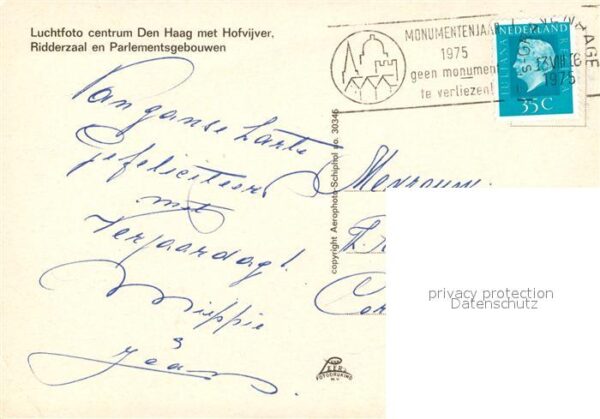 Luchtfoto centrum Den Haag met Hofvijver,
Ridderzaal en Parlementsgebouwen
MONUMENTENJAAR
1975
geen monument
te verliezen!
'S-GRAVENHAGE
13 VIII 18
1975
NEDERLAND
JULIANA REGINA
35C
Van ganse harte
Gefeliciteerd
met
Verjaardag!
Mieppie
Joan
copyright Aerophoto-Schiphol no. 30346
Mevrouw
privacy protection
Datenschutz
FOTODRUKIND
N.V.